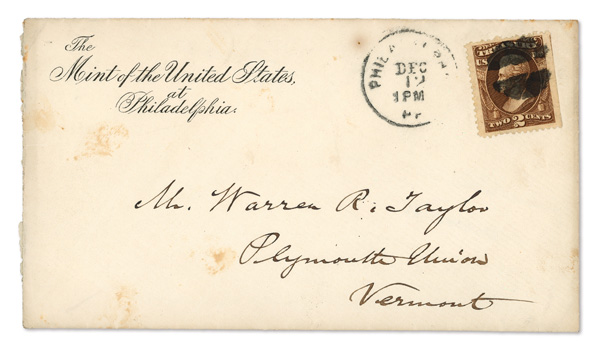 The
Mint of the United States,
at
Philadelphia.
PHILA
DEC
12
1PM
TREASURY
U.S.
TWO 2 CENTS
Mr. Warren R. Taylor
Plymouth Union
Vermont